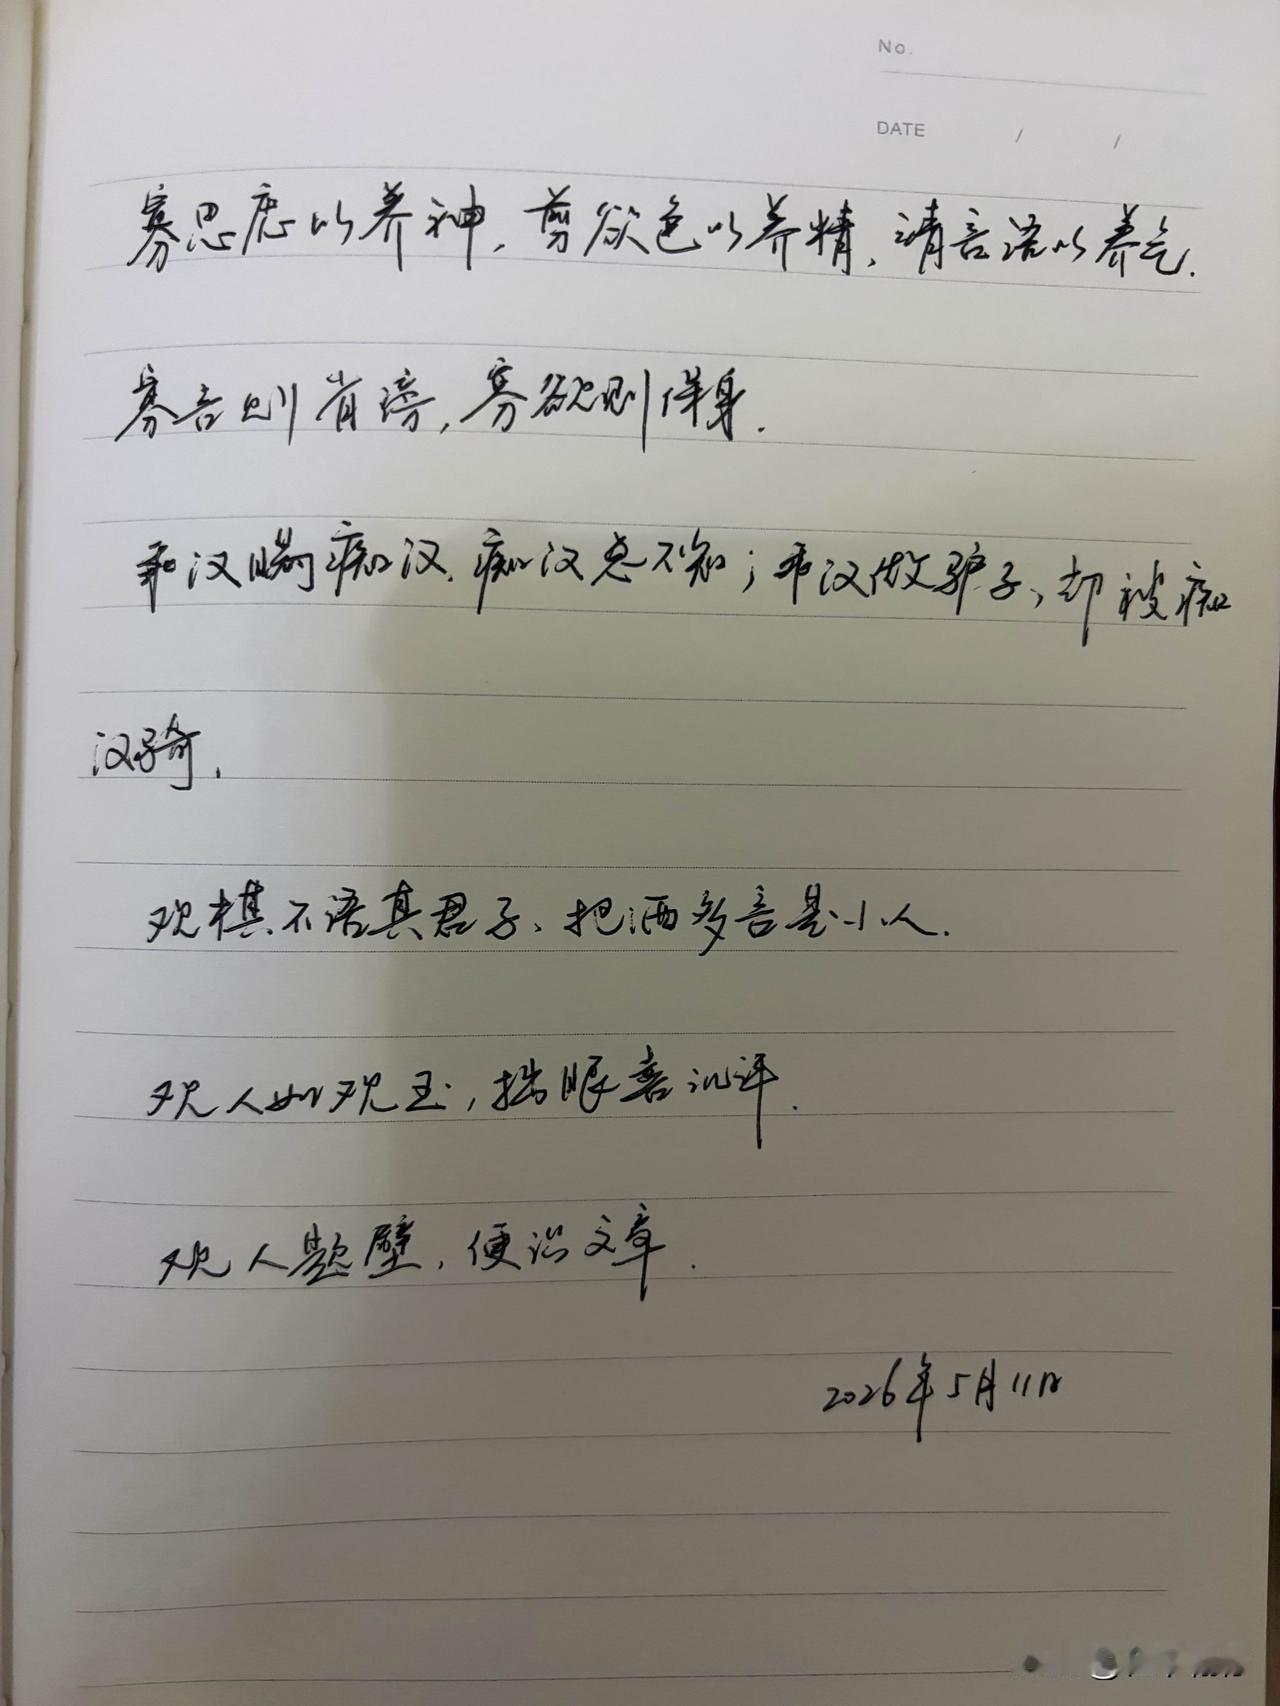 No.
DATE / /
寡思虑以养神，剪欲色以养精，请言语以养气.
寡言则省谤，寡欲则保身.
乖汉瞒痴汉，痴汉总不知；乖汉做驴子，却被痴
汉骑.
观棋不语真君子，把酒多言是小人.
观人如观玉，拙眼喜讥评.
观人题壁，便识文章.
2026年5月11日